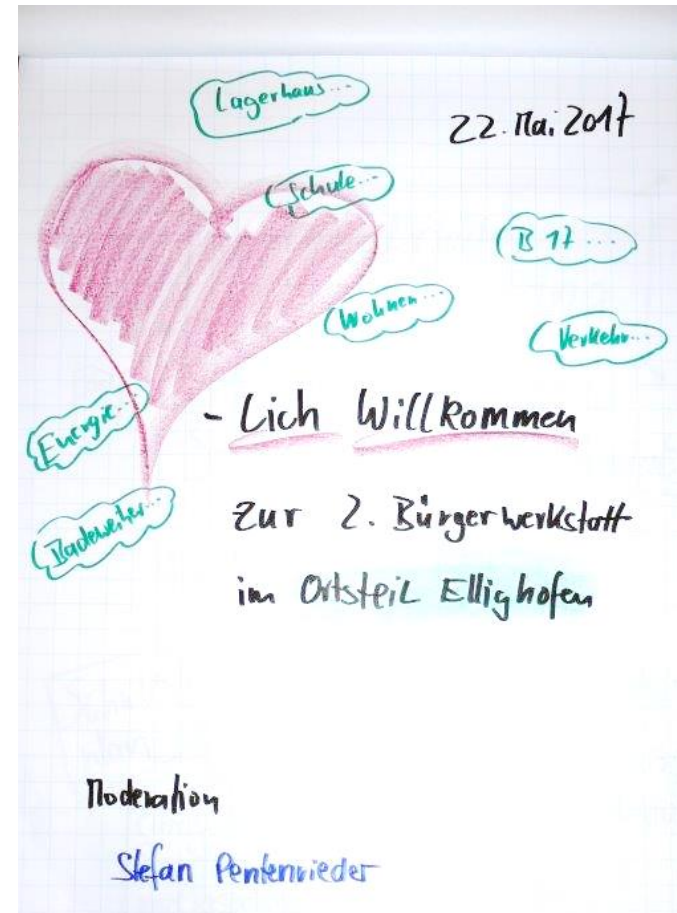 Lagerhaus...
22. Mai 2017
Schule...
B 17 ...
Wohnen...
Verkehr...
Energie...
- Lich Willkommen
Badeweiher...
zur 2. Bürgerwerkstatt
im Ortsteil Ellighofen
Moderation
Stefan Pentenrieder